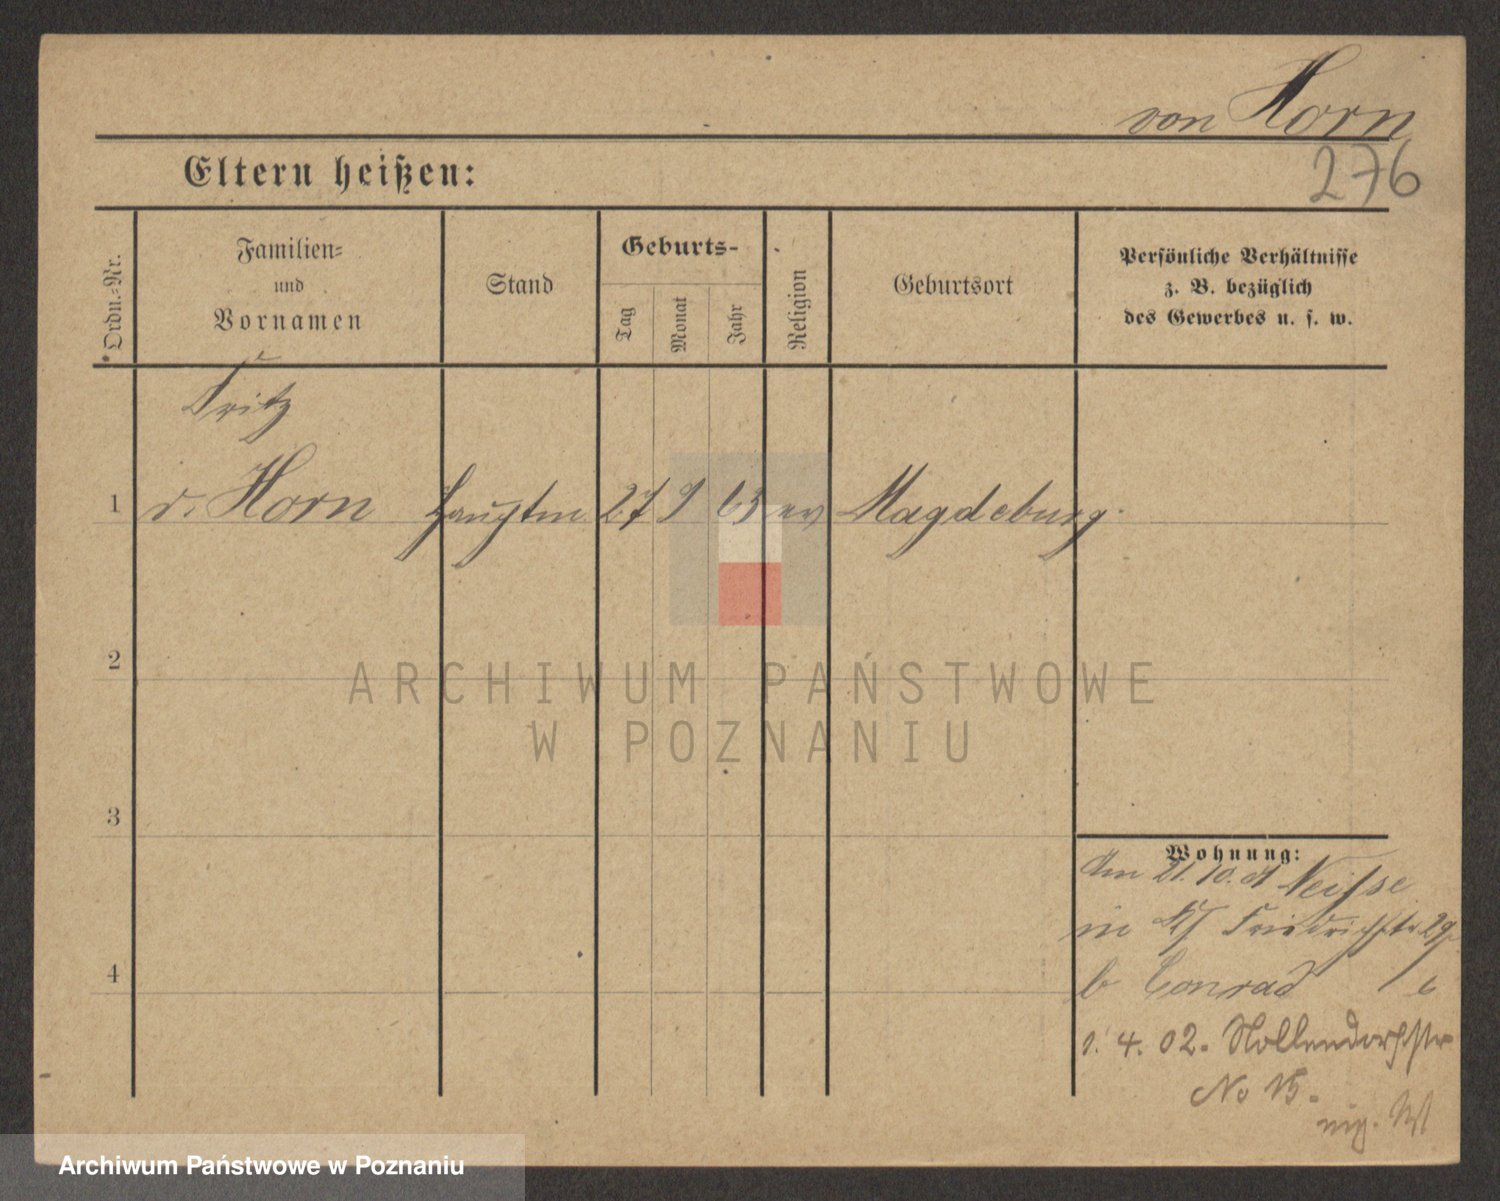 von Horn
276
Eltern heißen:
Ordn.-Nr.
Familien-
und
Vornamen
Stand
Geburts-
Tag
Monat
Jahr
Religion
Geburtsort
Persönliche Verhältnisse
z. B. bezüglich
des Gewerbes u. s. w.
Fritz
1 v. Horn Hauptm 27 9 63 ev Magdeburg
2
ARCHIWUM PAŃSTWOWE
W POZNANIU
3
Wohnung:
21. 10. 01 Neisse
in Friedrichstr 29
b Conrad
1. 4. 02. Nollendorfstr
No 15.
4
Archiwum Państwowe w Poznaniu